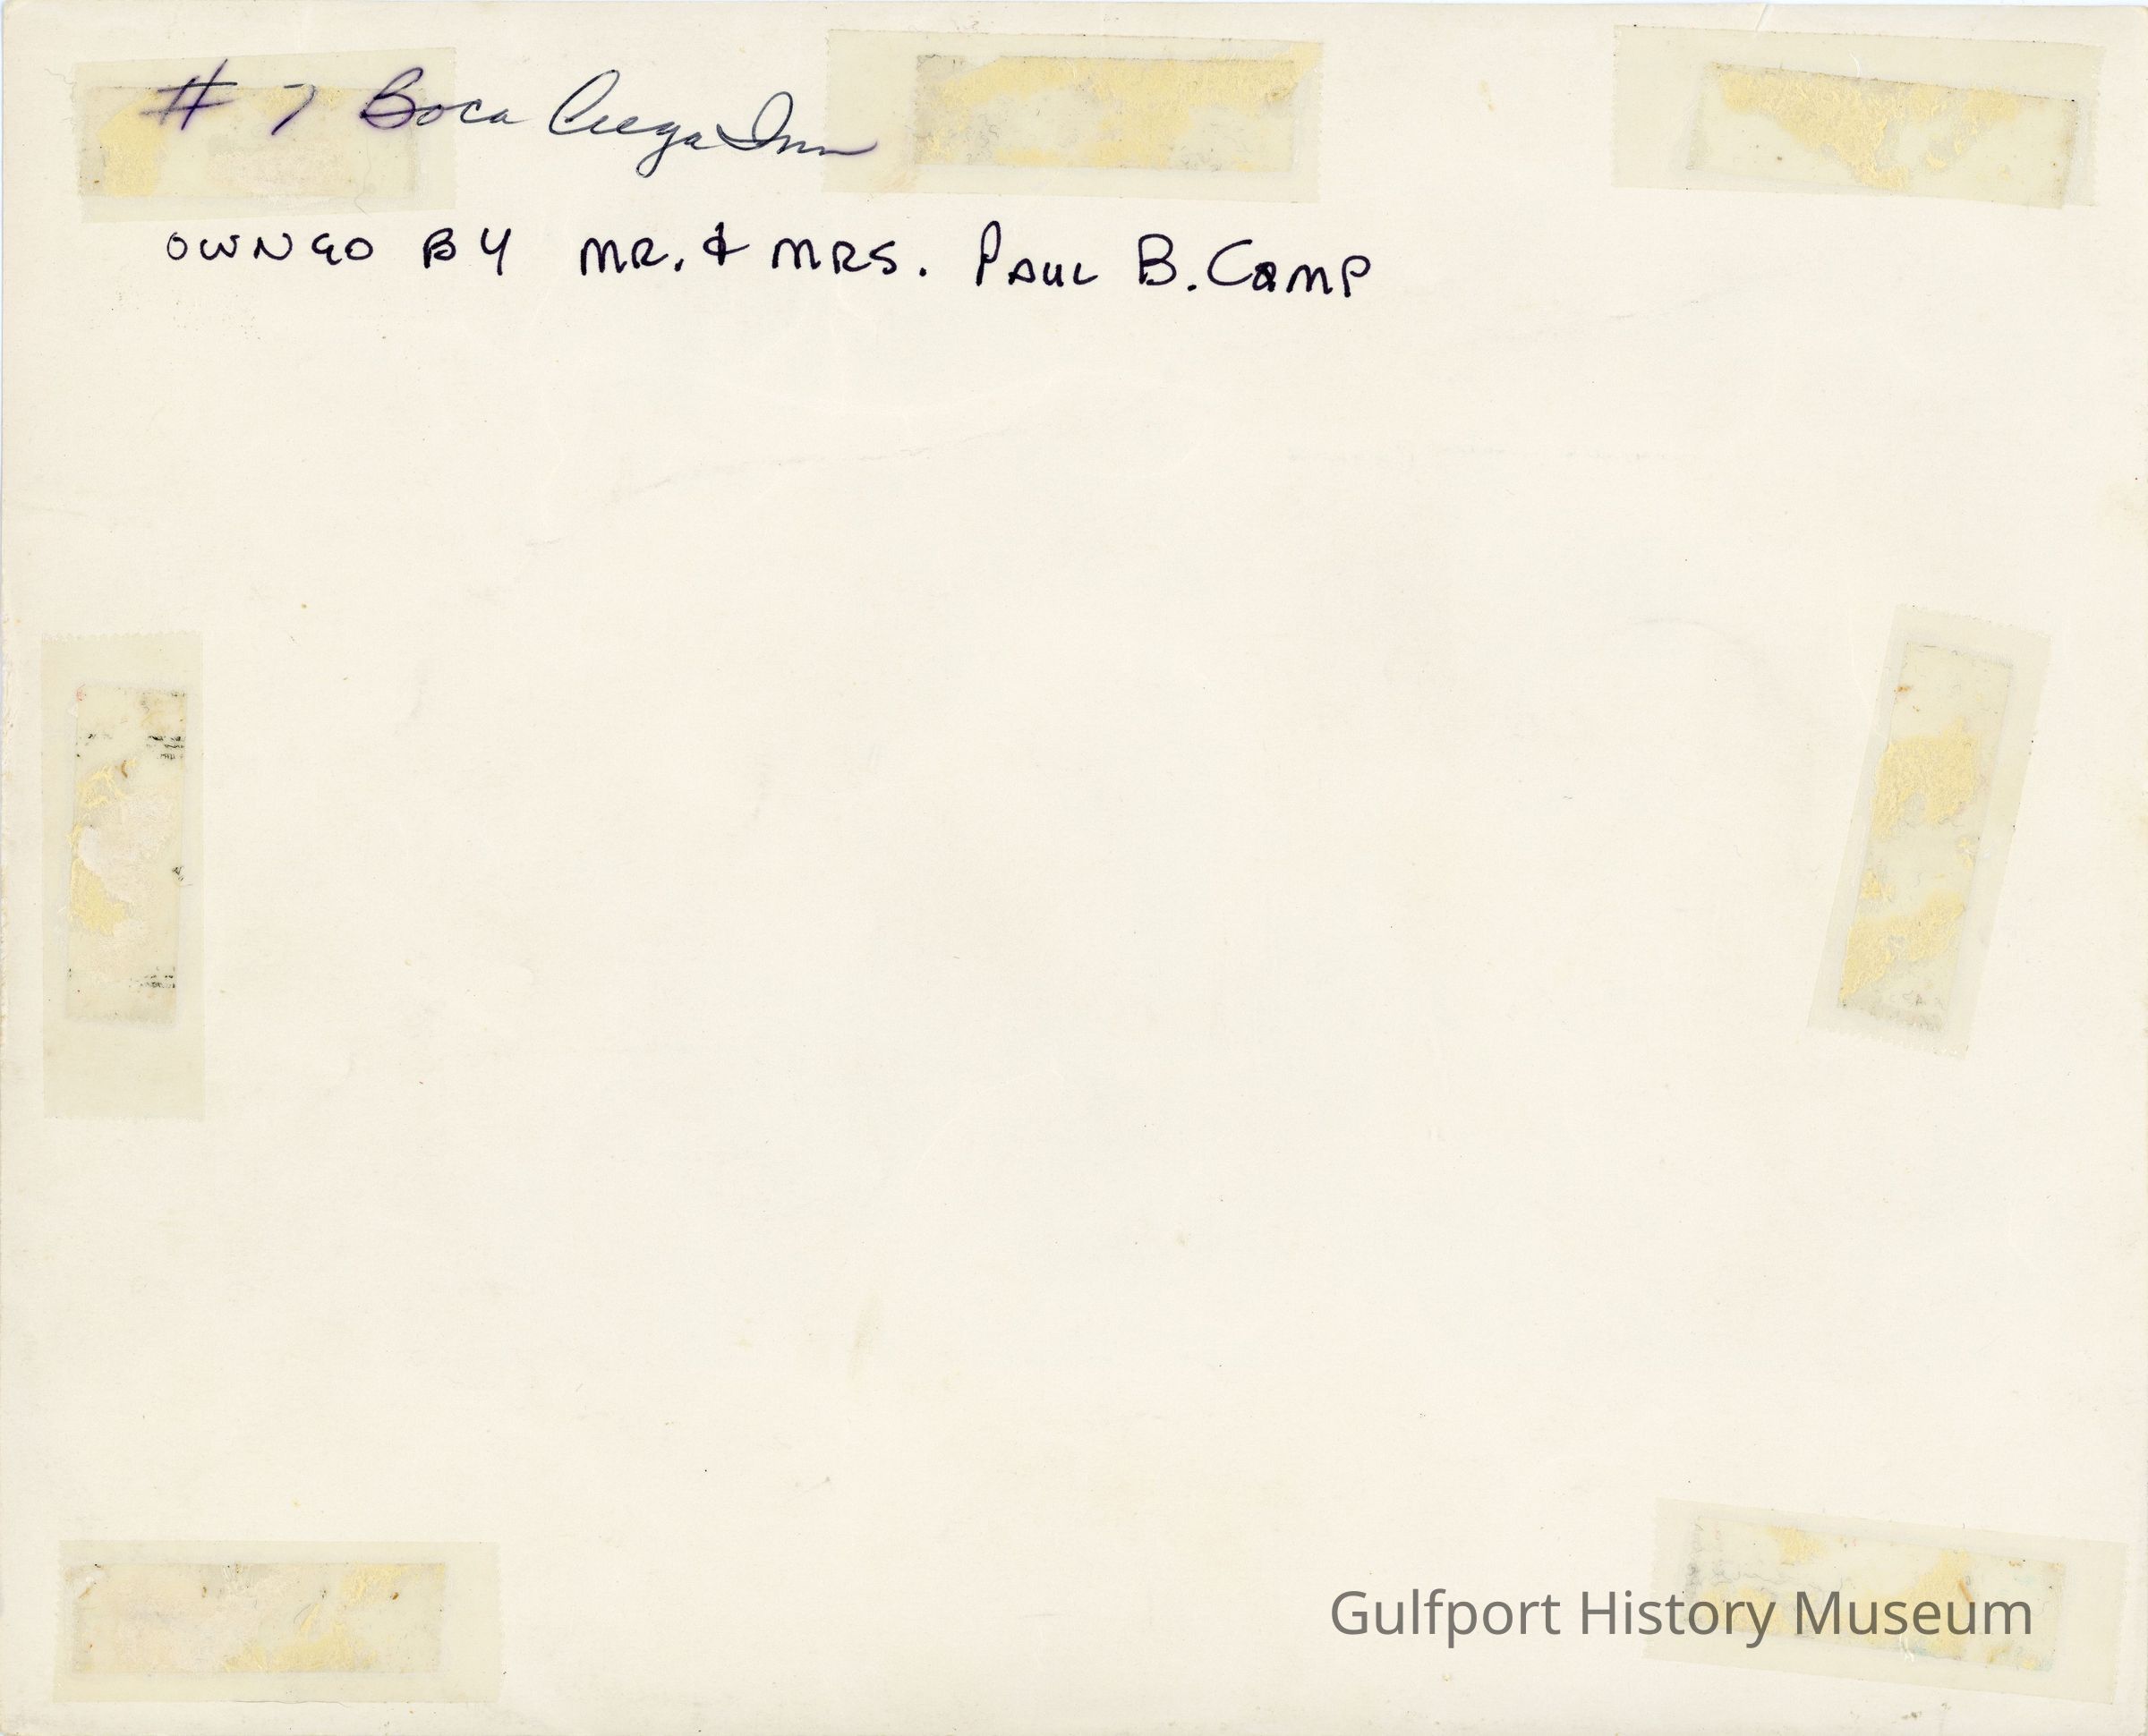 # 7 Boca Ciega Inn
OWNED BY MR. & MRS. PAUL B. CAMP
Gulfport History Museum